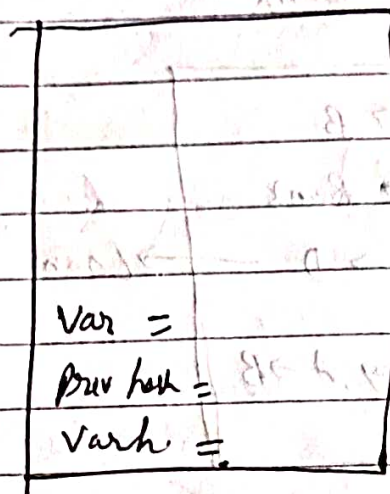 Var =
Prev hash =
Varh =